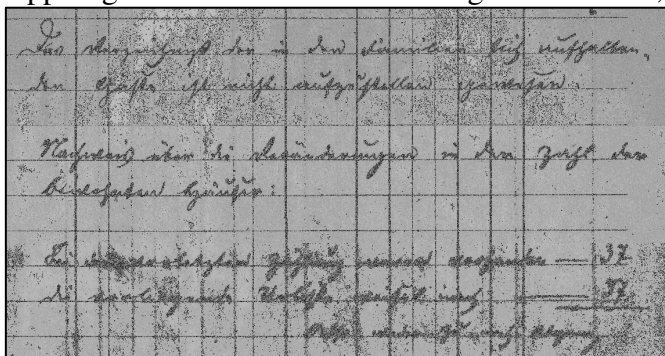 Das Verzeichniß der in den Familien sich aufhalten-
den Gäste ist nicht aufzustellen gewesen.
Nachweis über die Veränderungen in der Zahl der
bewohnten Häuser:
Bei der vorletzten Zählung waren vorhanden — 37
die vorliegende Urliste weiset nach — 37